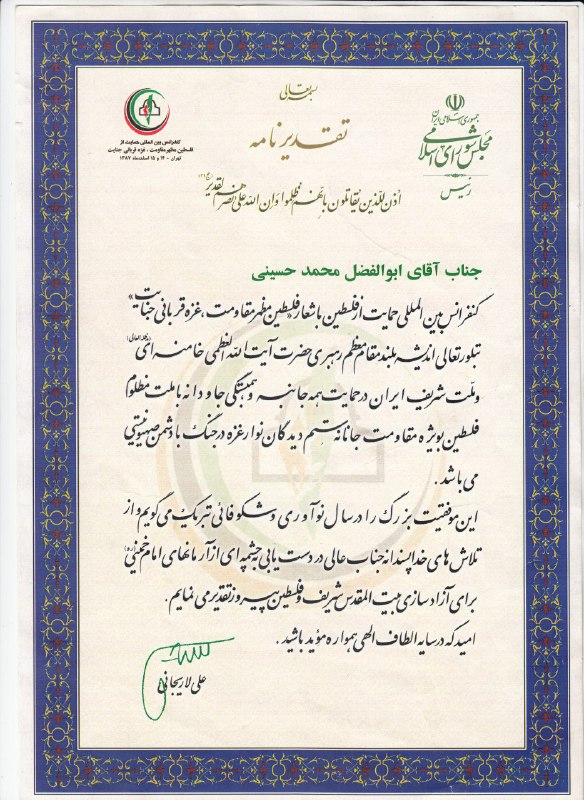 بسمه تعالی
تقدیرنامه
جمهوری اسلامی ایران
مجلس شورای اسلامی
رئیس
کنفرانس بین المللی حمایت از
فلسطین مظهر مقاومت ، غزه قربانی جنایت
تهران - ۱۴ و ۱۵ اسفندماه ۱۳۸۷
اذن للذین یقاتلون بانهم ظلموا و ان الله علی نصرهم لقدیر
جناب آقای ابوالفضل محمد حسینی
کنفرانس بین المللی حمایت از فلسطین با شعار «فلسطین مظهر مقاومت ، غزه قربانی جنایت»
تبلور تعالی اندیشه بلند مقام معظم رهبری حضرت آیت الله العظمی خامنه ای (مدظله العالی)
و ملت شریف ایران در حمایت همه جانبه و همبستگی جاودانه با ملت مظلوم
فلسطین بویژه مقاومت جانانه ستم دیدگان نوار غزه در جنگ با دشمن صهیونیستی
می باشد .
این موفقیت بزرگ را در سال نوآوری و شکوفائی تبریک می گویم و از
تلاش های خداپسندانه جناب عالی در دست یابی به چشمه ای از آرمانهای امام خمینی (ره)
برای آزادسازی بیت المقدس شریف و فلسطین پیروز تقدیر می نمایم .
امید که در سایه الطاف الهی همواره مؤید باشید .
علی لاریجانی